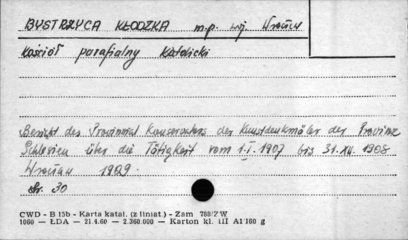 BYSTRZYCA KŁODZKA m.p. woj. Wrocław
Kościół parafialny Katolicki
Bericht des Provinzial Konservators der Kunstdenkmäler der Provinz
Schlesien über die Tätigkeit vom 1.I.1907 bis 31.XII.1908
Wrocław 1909.
Str. 30
CWD - B 15b - Karta katal. (z liniat.) - Zam 788/ZW
1060 - ŁDA - 21.4.60 - 2.360.000 - Karton kl. III A1 160 g